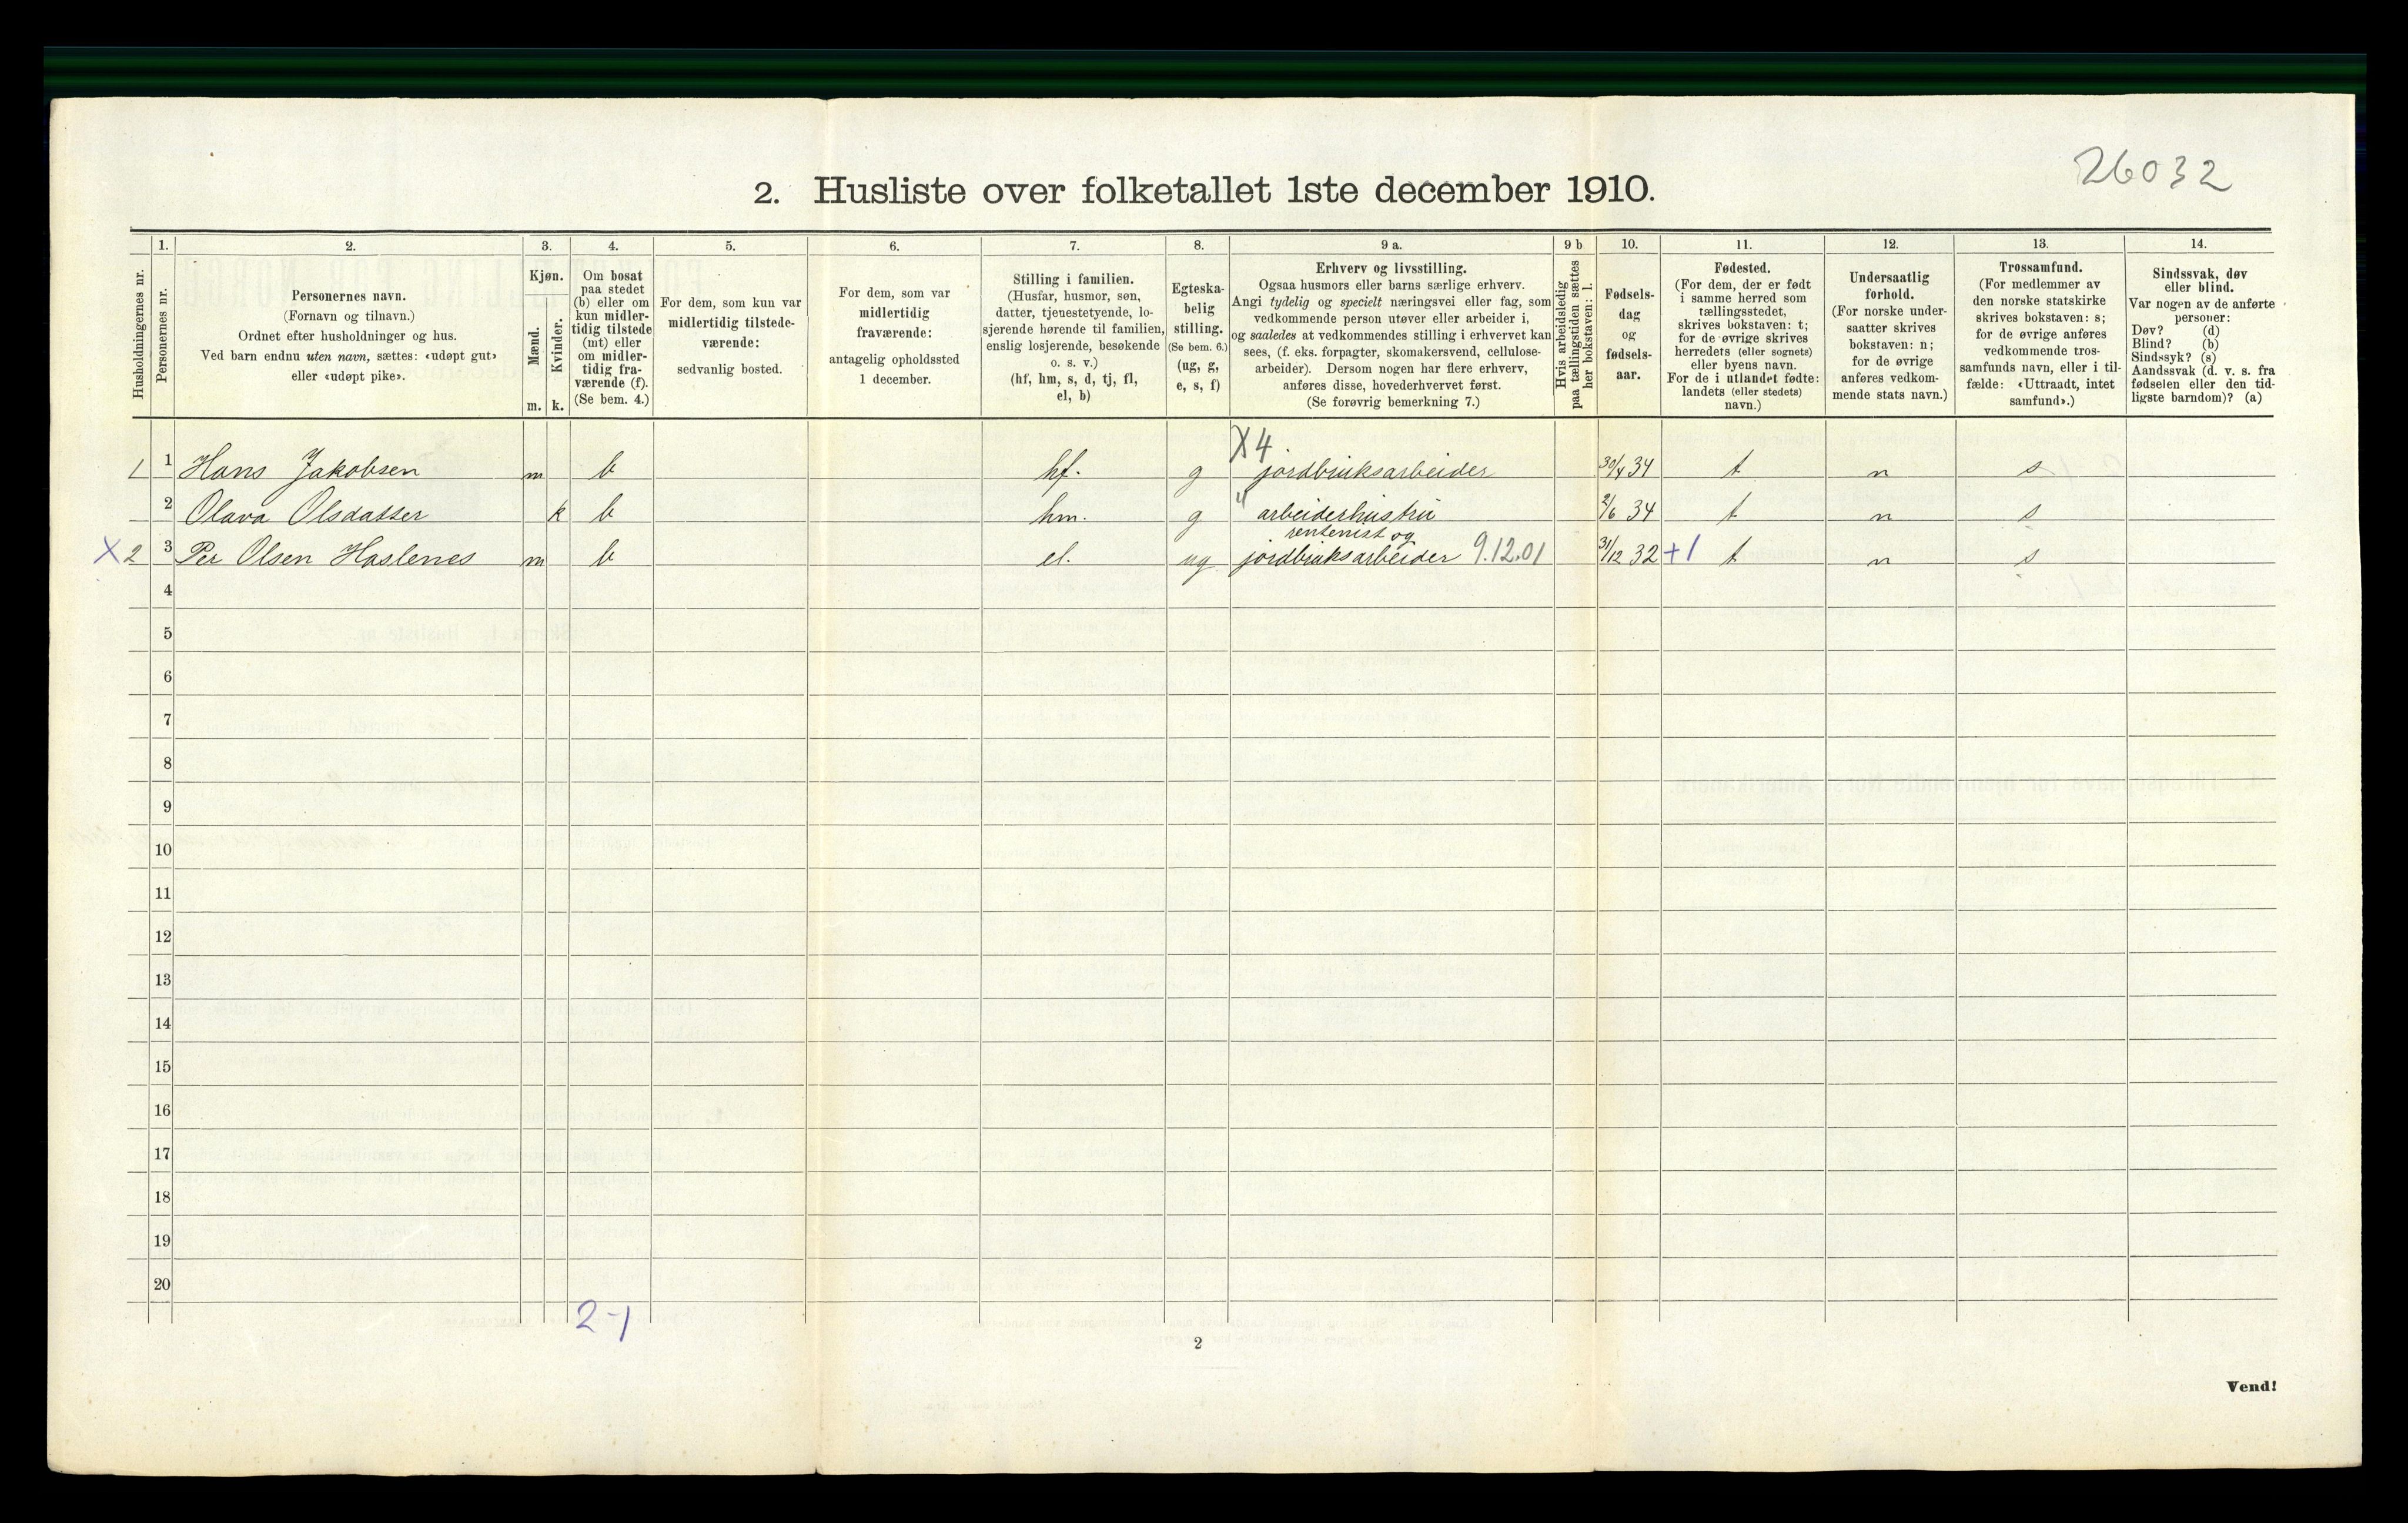 26032
2. Husliste over folketallet 1ste december 1910.
1. 2. 3. 4. 5. 6. 7. 8. 9 a. 9 b 10. 11. 12. 13. 14.
Husholdningernes nr.
Personernes nr.
Personernes navn.
(Fornavn og tilnavn.)
Ordnet efter husholdninger og hus.
Ved barn endnu uten navn, sættes: «udøpt gut»
eller «udøpt pike».
Kjøn.
Mænd.
Kvinder.
m. k.
Om bosat
paa stedet
(b) eller om
kun midler-
tidig tilstede
(mt) eller
om midler-
tidig fra-
værende (f).
(Se bem. 4.)
For dem, som kun var
midlertidig tilstede-
værende:
sedvanlig bosted.
For dem, som var
midlertidig
fraværende:
antagelig opholdssted
1 december.
Stilling i familien.
(Husfar, husmor, søn,
datter, tjenestetyende, lo-
sjerende hørende til familien,
enslig losjerende, besøkende
o. s. v.)
(hf, hm, s, d, tj, fl,
el, b)
Egteska-
belig
stilling.
(Se bem. 6.)
(ug, g,
e, s, f)
Erhverv og livsstilling.
Ogsaa husmors eller barns særlige erhverv.
Angi tydelig og specielt næringsvei eller fag, som
vedkommende person utøver eller arbeider i,
og saaledes at vedkommendes stilling i erhvervet kan
sees, (f. eks. forpagter, skomakersvend, cellulose-
arbeider). Dersom nogen har flere erhverv,
anføres disse, hovederhvervet først.
(Se forøvrig bemerkning 7.)
Hvis arbeidsledig
paa tællingstiden sættes
her bokstaven: l.
Fødsels-
dag
og
fødsels-
aar.
Fødested.
(For dem, der er født
i samme herred som
tællingsstedet,
skrives bokstaven: t;
for de øvrige skrives
herredets (eller sognets)
eller byens navn.
For de i utlandet fødte:
landets (eller stedets)
navn.)
Undersaatlig
forhold.
(For norske under-
saatter skrives
bokstaven: n;
for de øvrige
anføres vedkom-
mende stats navn.)
Trossamfund.
(For medlemmer av
den norske statskirke
skrives bokstaven: s;
for de øvrige anføres
vedkommende tros-
samfunds navn, eller i til-
fælde: «Uttraadt, intet
samfund».)
Sindssvak, døv
eller blind.
Var nogen av de anførte
personer:
Døv? (d)
Blind? (b)
Sindssyk? (s)
Aandssvak (d. v. s. fra
fødselen eller den tid-
ligste barndom)? (a)
X 4
1 1 Hans Jakobsen m b hf. g jordbruksarbeider 30/4 34 t n s
2 Olava Olsdatter k b hm. g " arbeiderhustru 2/6 34 t n s
rentenist og
X 2 3 Per Olsen Haslenes m b el. ug jordbruksarbeider 9.12.01 31/12 32 +1 t n s
4
5
6
7
8
9
10
11
12
13
14
15
16
17
18
19
20
2-1
2
Vend!